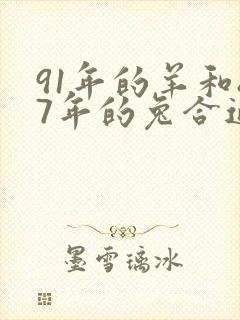 91年的羊和
7年的兔合
墨雪璃冰